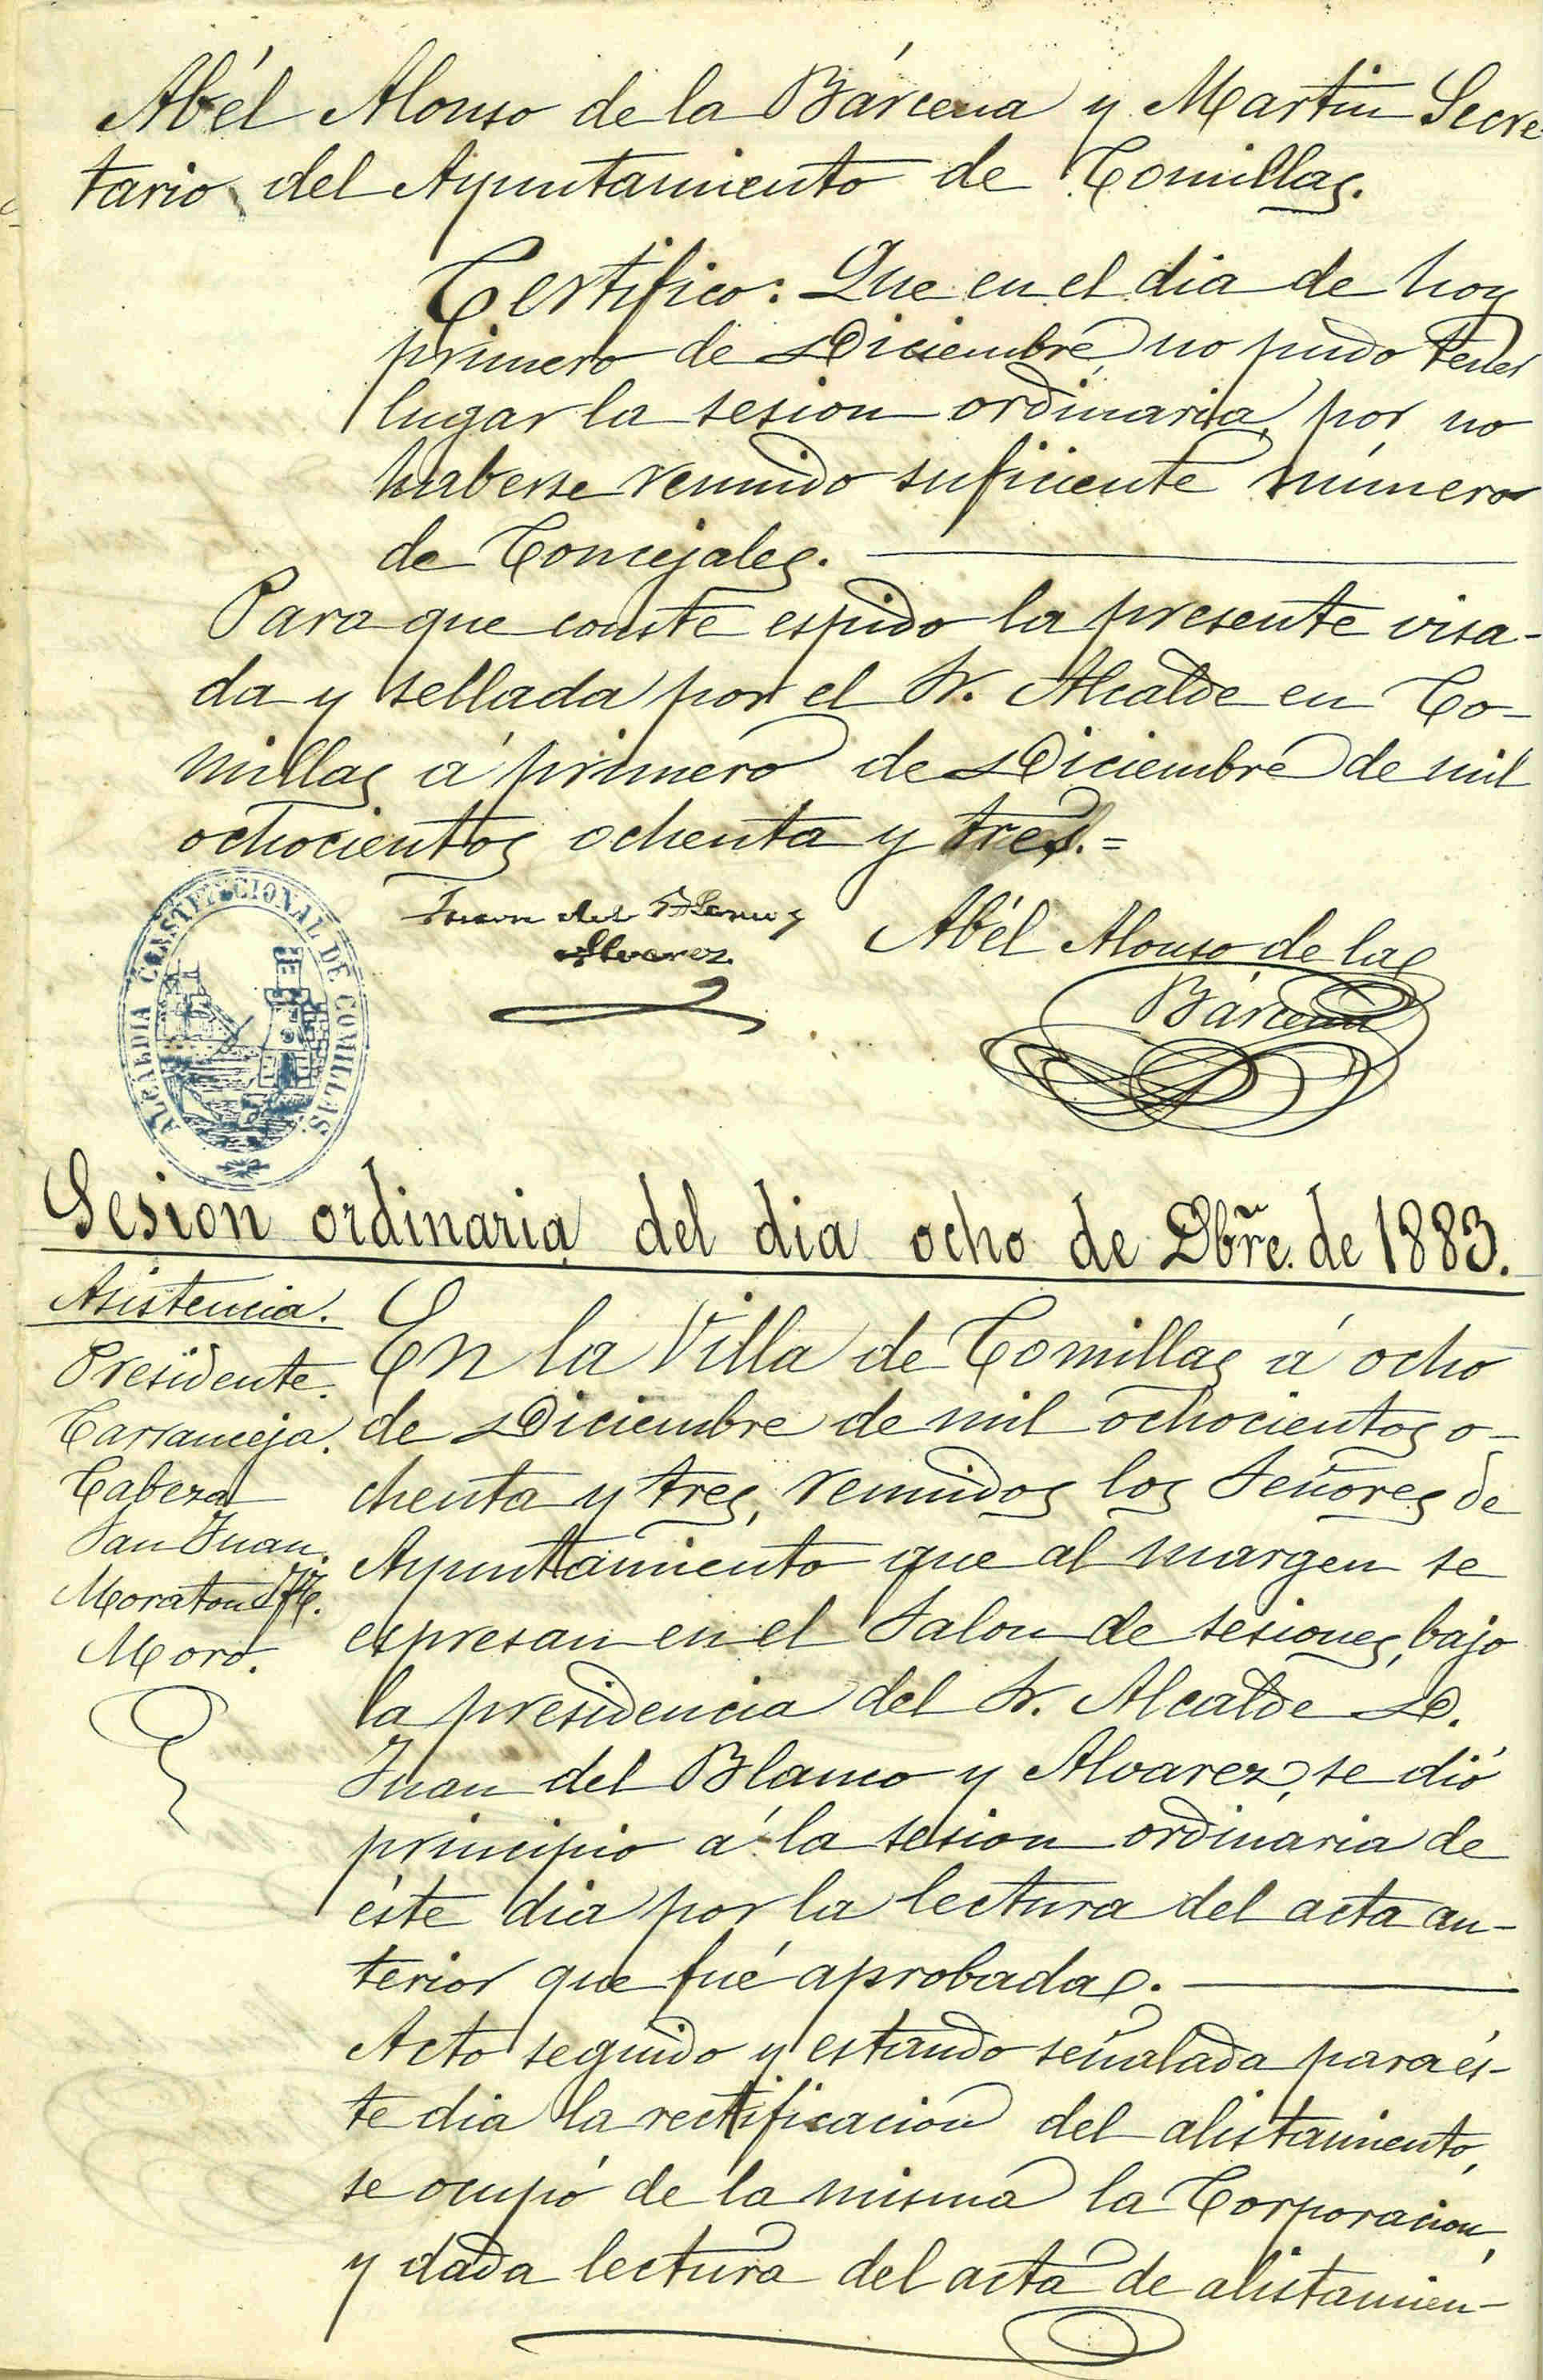 Abél Alonso de la Bárcena y Martin Secre-
tario del Ayuntamiento de Comillas.
Certifico: Que en el dia de hoy
primero de Diciembre, no pudo tener
lugar la sesion ordinaria, por no
haberse reunido suficiente número
de Concejales.
Para que conste espido la presente visa-
da y sellada por el Sr. Alcalde en Co-
millas á primero de Diciembre de mil
ochocientos ochenta y tres.=
Juan del Blanco y
Alvarez
Abél Alonso de la
Bárcena
ALCALDIA CONSTITUCIONAL DE COMILLAS
Sesion ordinaria del dia ocho de Dbre. de 1883.
Asistencia.
Presidente.
Carranceja.
Cabeza
San Juan.
Moraton
Moro.
En la Villa de Comillas á ocho
de Diciembre de mil ochocientos o-
chenta y tres, reunidos los Señores de
Ayuntamiento que al margen se
espresan en el Salon de sesiones, bajo
la presidencia del Sr. Alcalde D.
Juan del Blanco y Alvarez, se dió
principio á la sesion ordinaria de
éste dia por la lectura del acta an-
terior que fué aprobada.
Acto seguido y estando señalada para és-
te dia la rectificacion del alistamiento,
se ocupó de la misma la Corporacion,
y dada lectura del acta de alistamien-